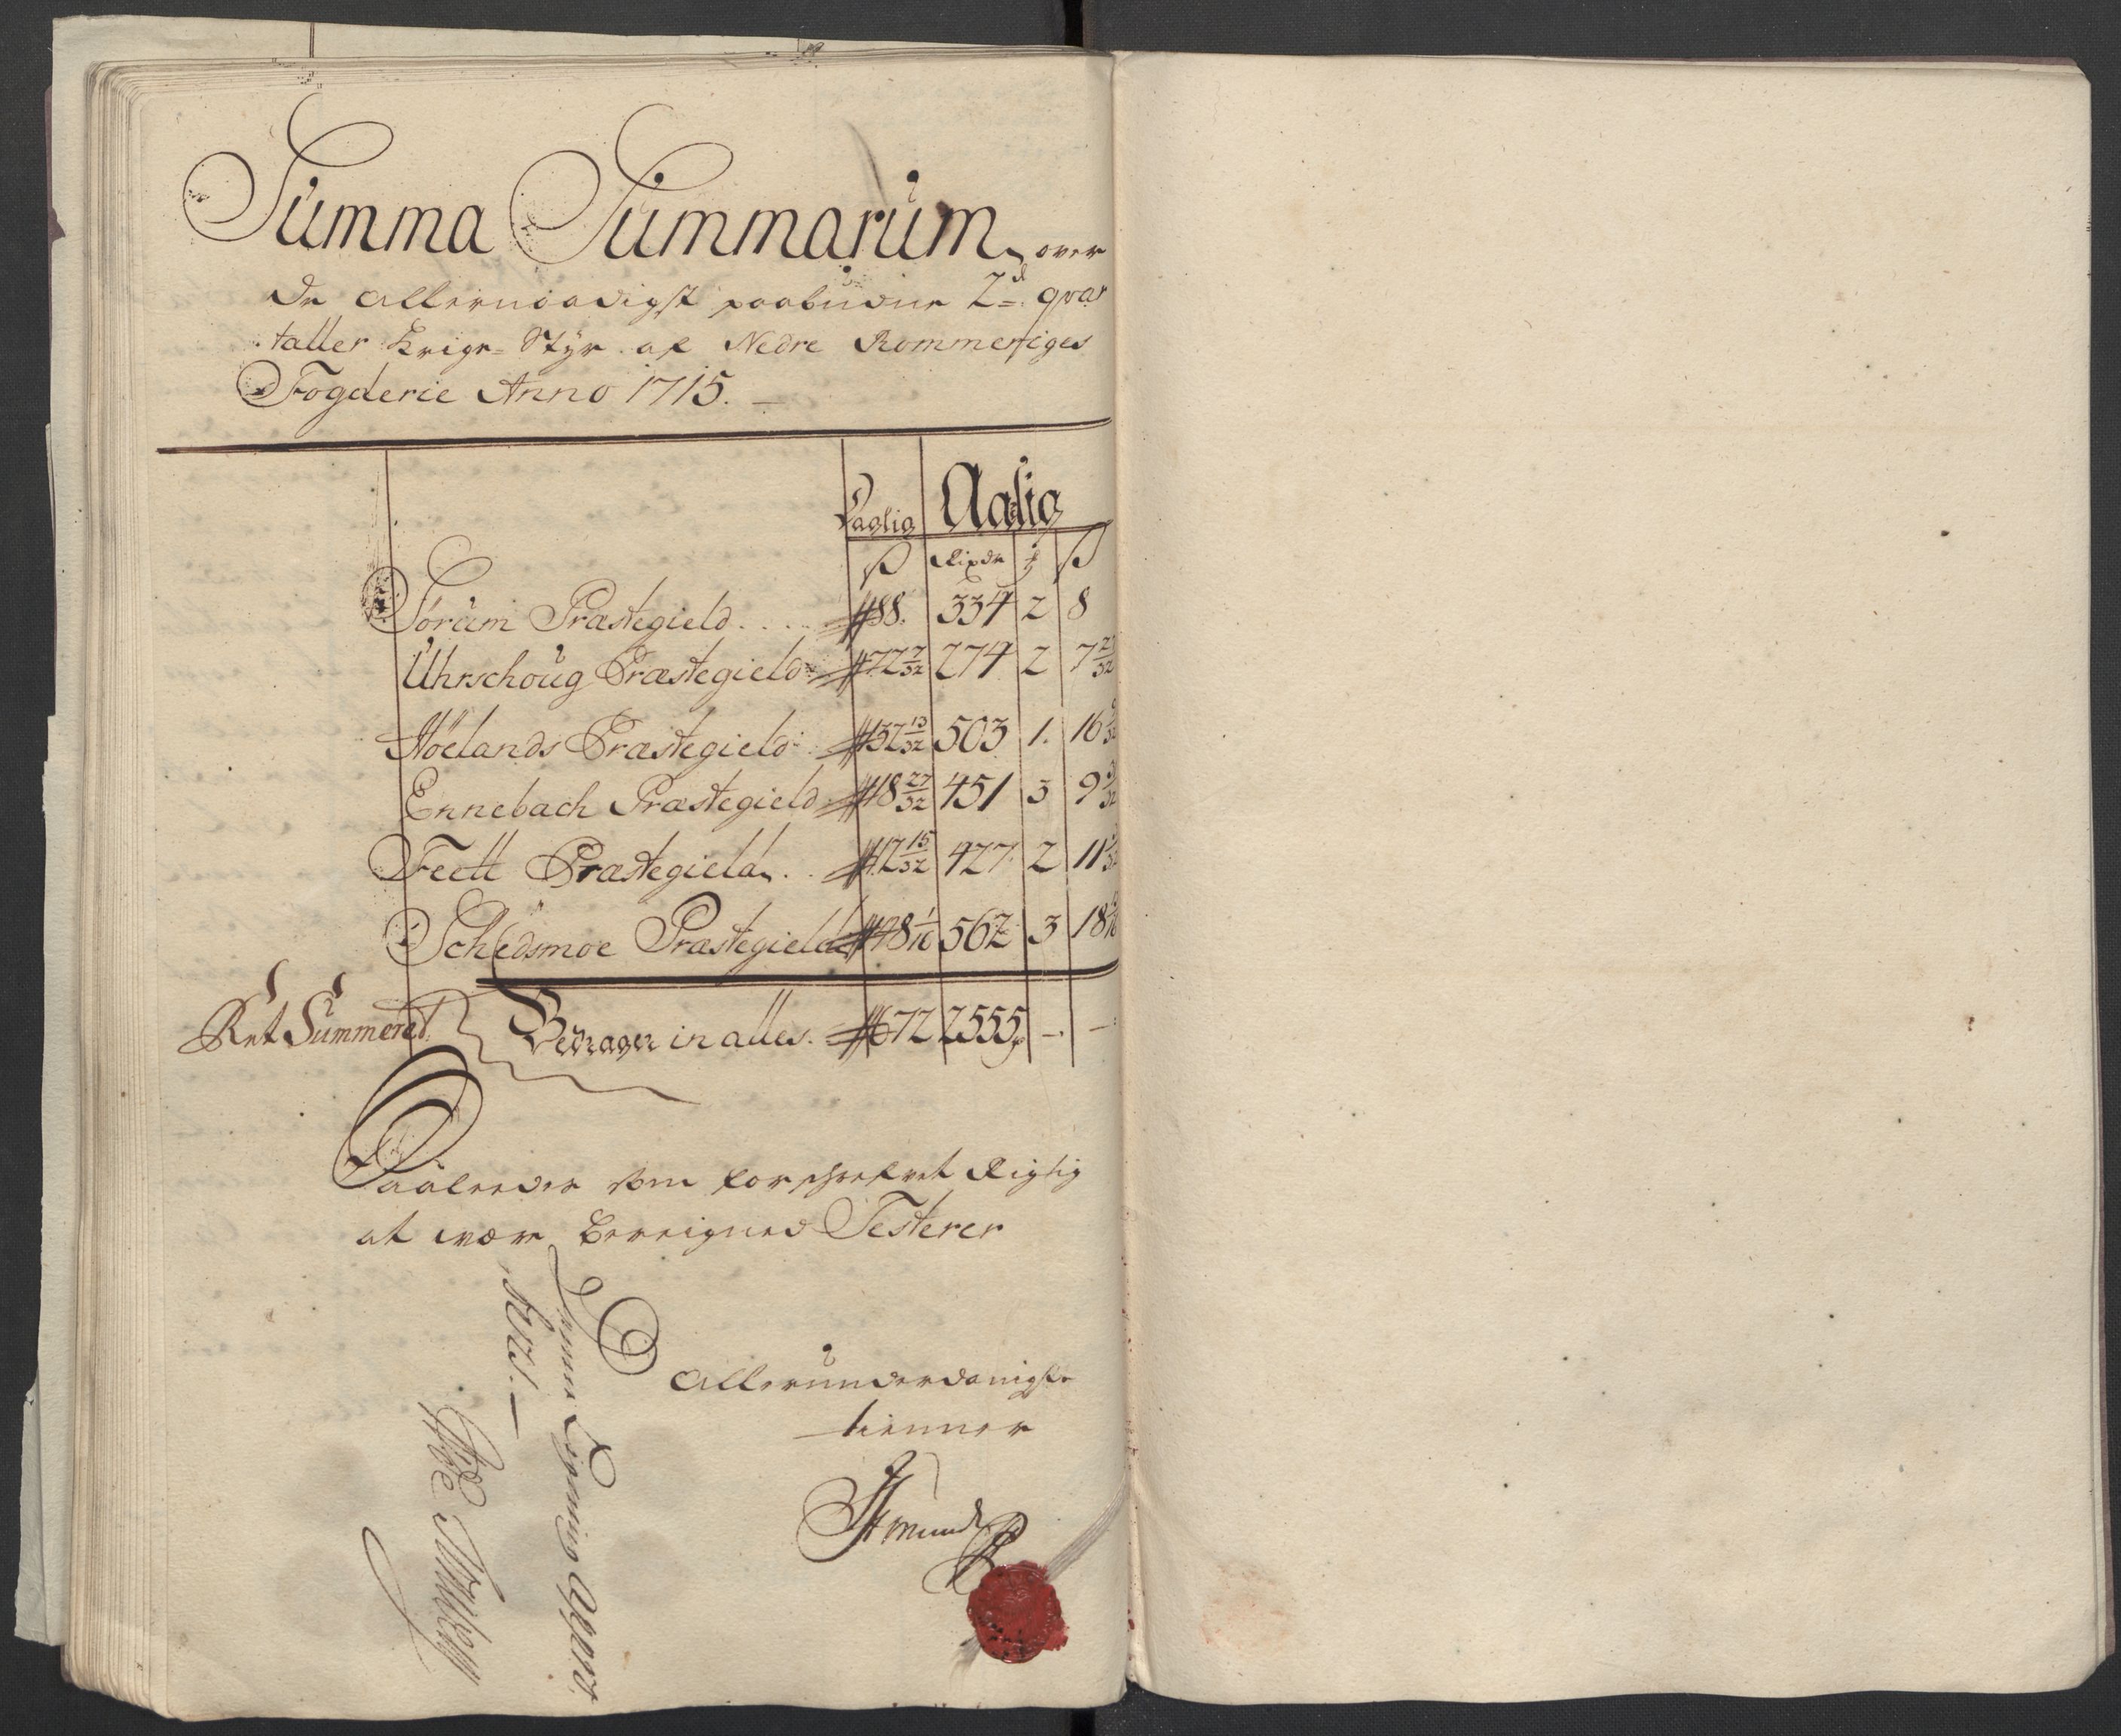 Summa Summarum over
de allernaadigst paabudne 2de qvar
taller Krigs-Styr af Nedre Rommeriges
Fogderie Anno 1715.
Daglig Aarlig
ß Rixdr ß
Sørum Præstegield . . . . 88. 334 2 8
Uhrschoug Præstegield 72 7/32 274 2 7 21/32
Høelands Præstegield 132 13/32 503 1. 16
Ennebach Præstegield 118 27/32 451 3 9
Feett Præstegield . . 112 15/32 427 2 11
Schedsmoe Præstegield 148 1/16 562 3 18
Ret Summeret Bedrager in alles. 672 2555 — —
Saaleedes som forschrefvet Rigtig
at være Bereigned Testerer
Allerunderdanigste
tienner
Denne Ligning